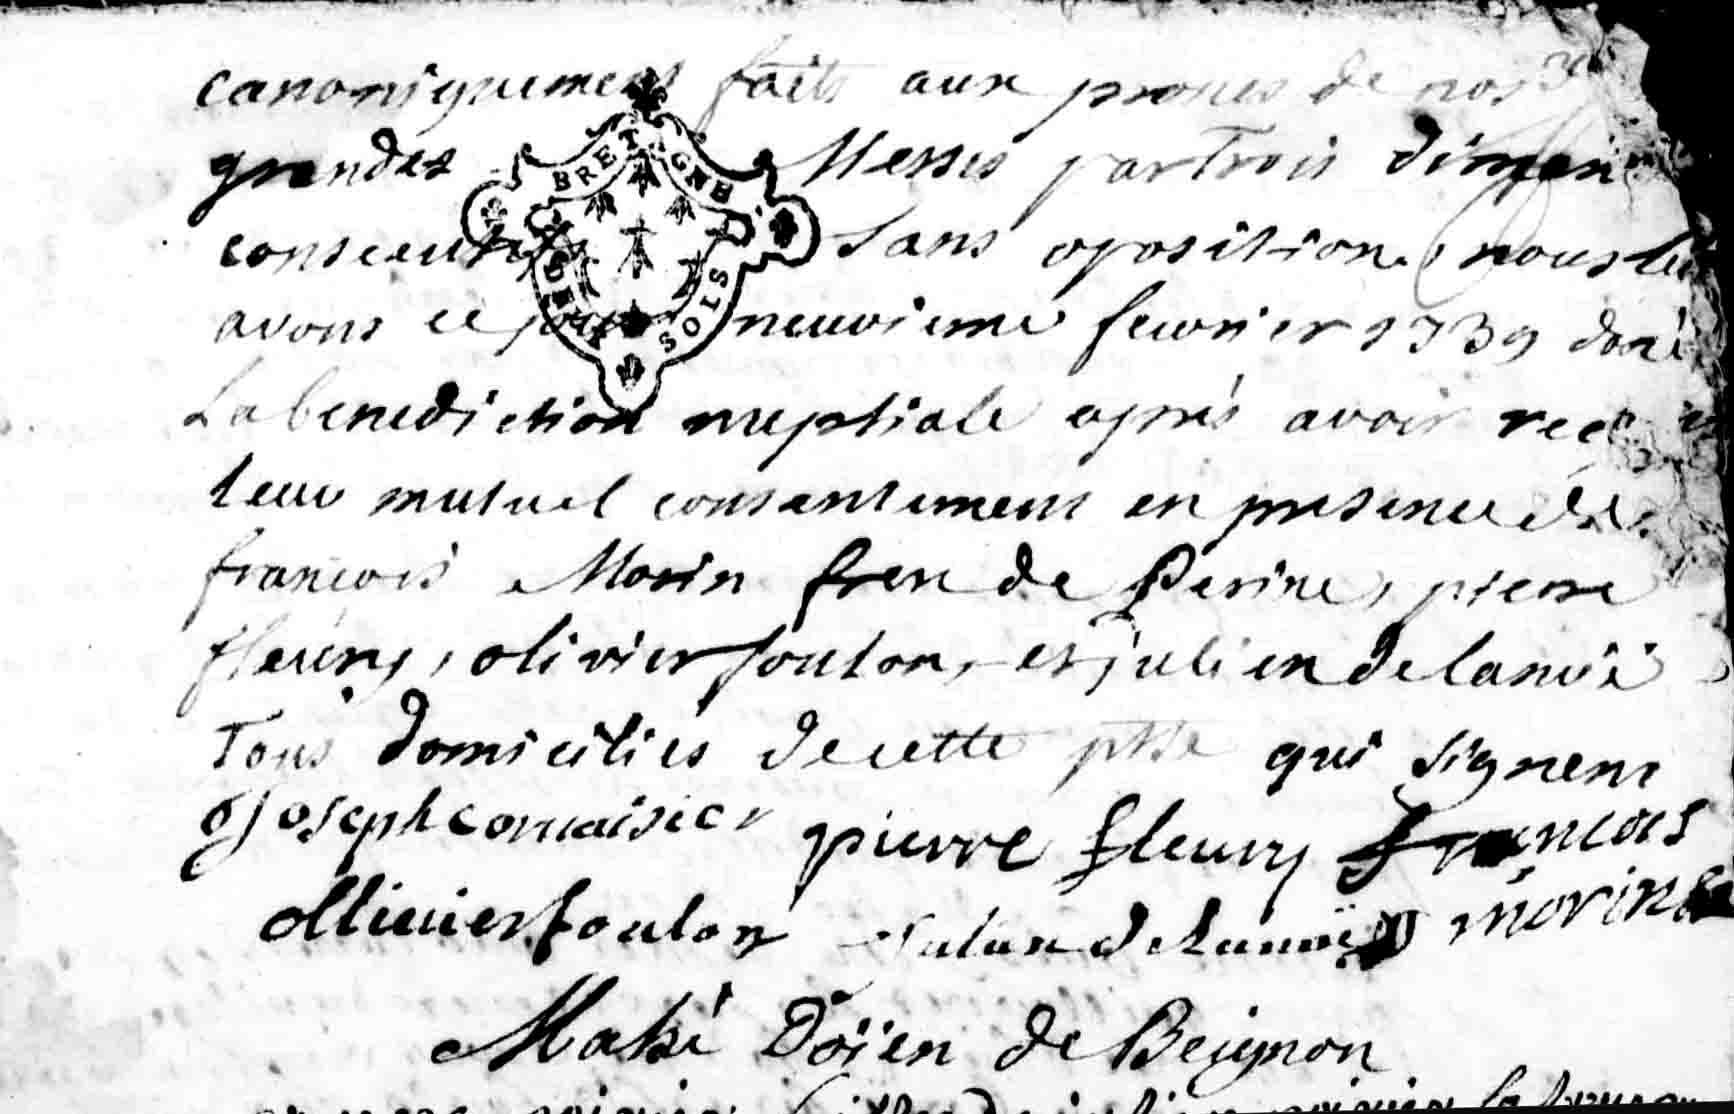 canoniquement faits aux prones de nos
grandes Messes par Trois dimen
consecutifs sans oposition, nous leur
avons ce jour neuvieme fevrier 1739 doné
La benediction nuptiale aprés avoir
leur mutuel consentement en presence de
francois Morin frere de Perine, pierre
fleury, olivier foulon, et julien delanoë
Tous domiciliés de cette psse qui signent
joseph pierre fleury francois
ollivier foulon julien delanoë morin
Mahé Doïen de Beignon
BRETAGNE
SOLS